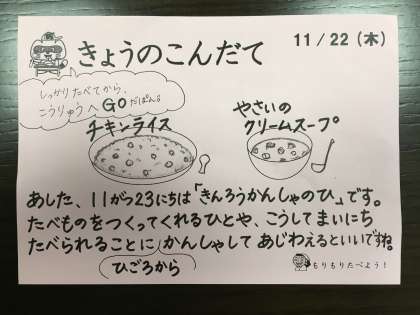 きょうのこんだて
11/22(木)
しっかりたべてから、
こうりゅうへGOだぱん。
チキンライス
やさいの
クリームスープ
あした、11がつ23にちは「きんろうかんしゃのひ」です。
たべものをつくってくれるひとや、こうしてまいにち
たべられることにかんしゃしてあじわえるといいですね。
ひごろから
もりもりたべよう!